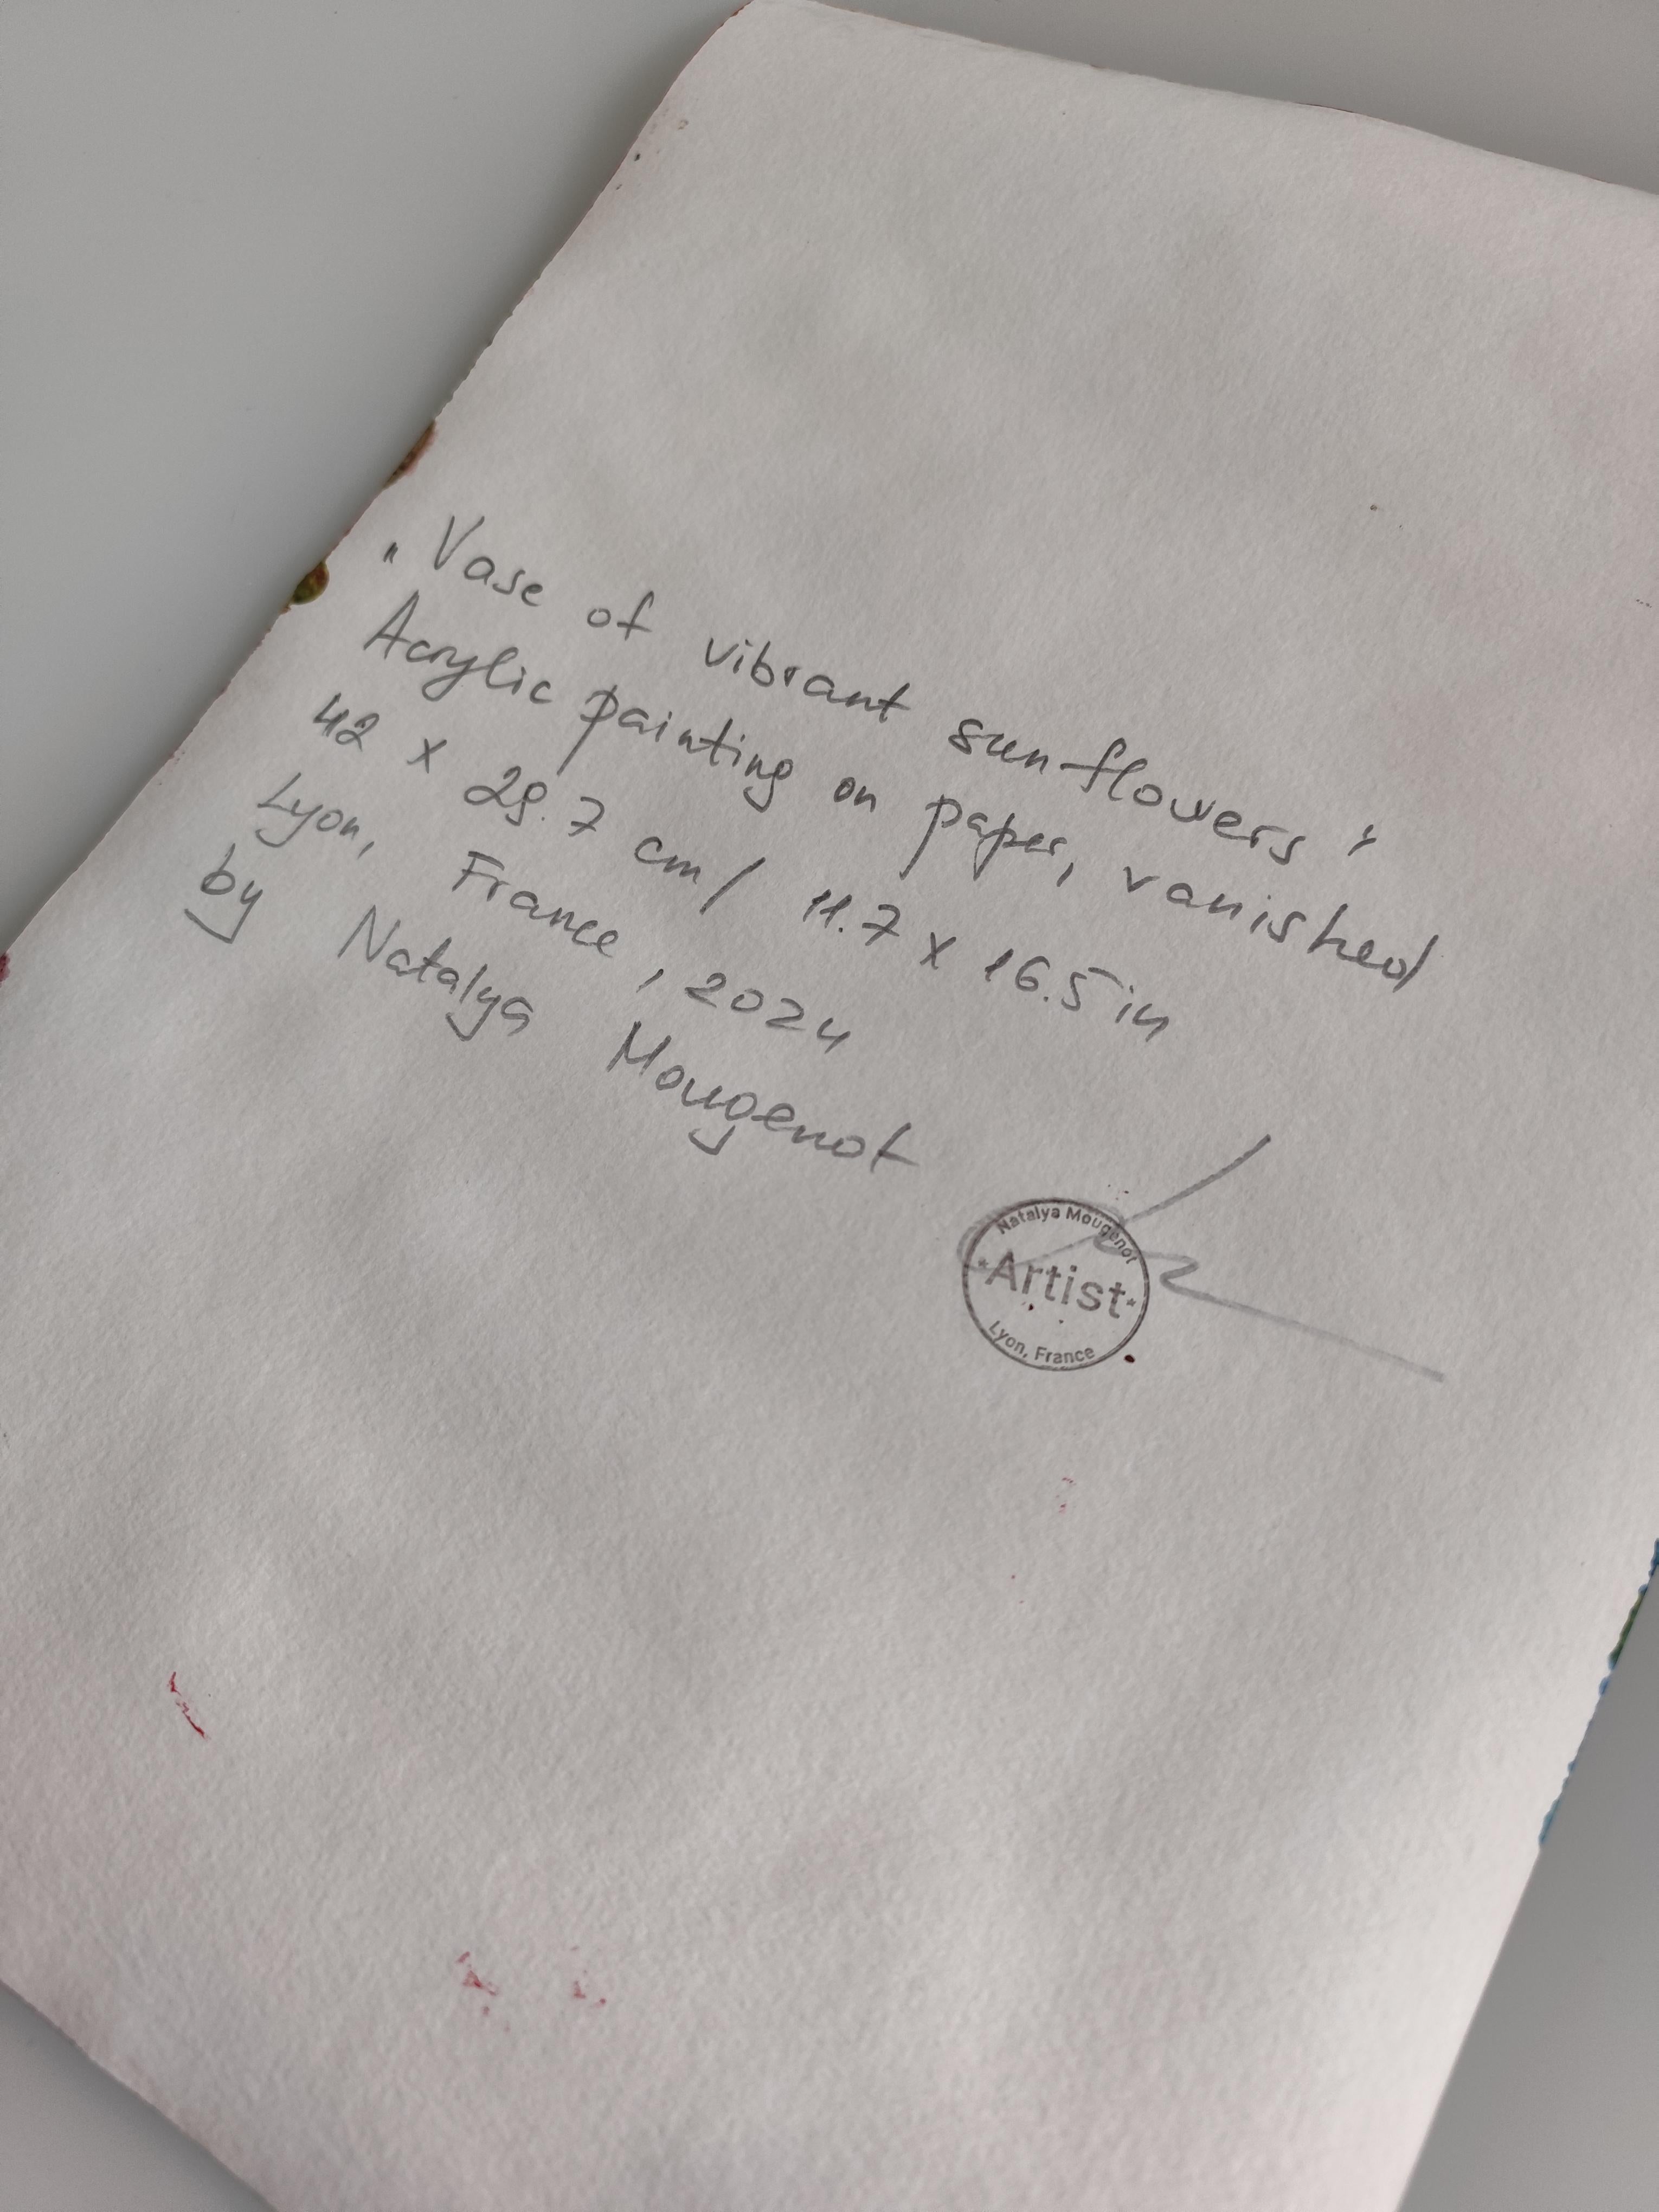 „Vase of vibrant sunflowers"
Acrylic painting on paper, vanished
42 x 29.7 cm / 11.7 x 16.5 in
Lyon, France, 2024
by Natalya Mougenot
Natalya Mougenot
Artist
Lyon, France